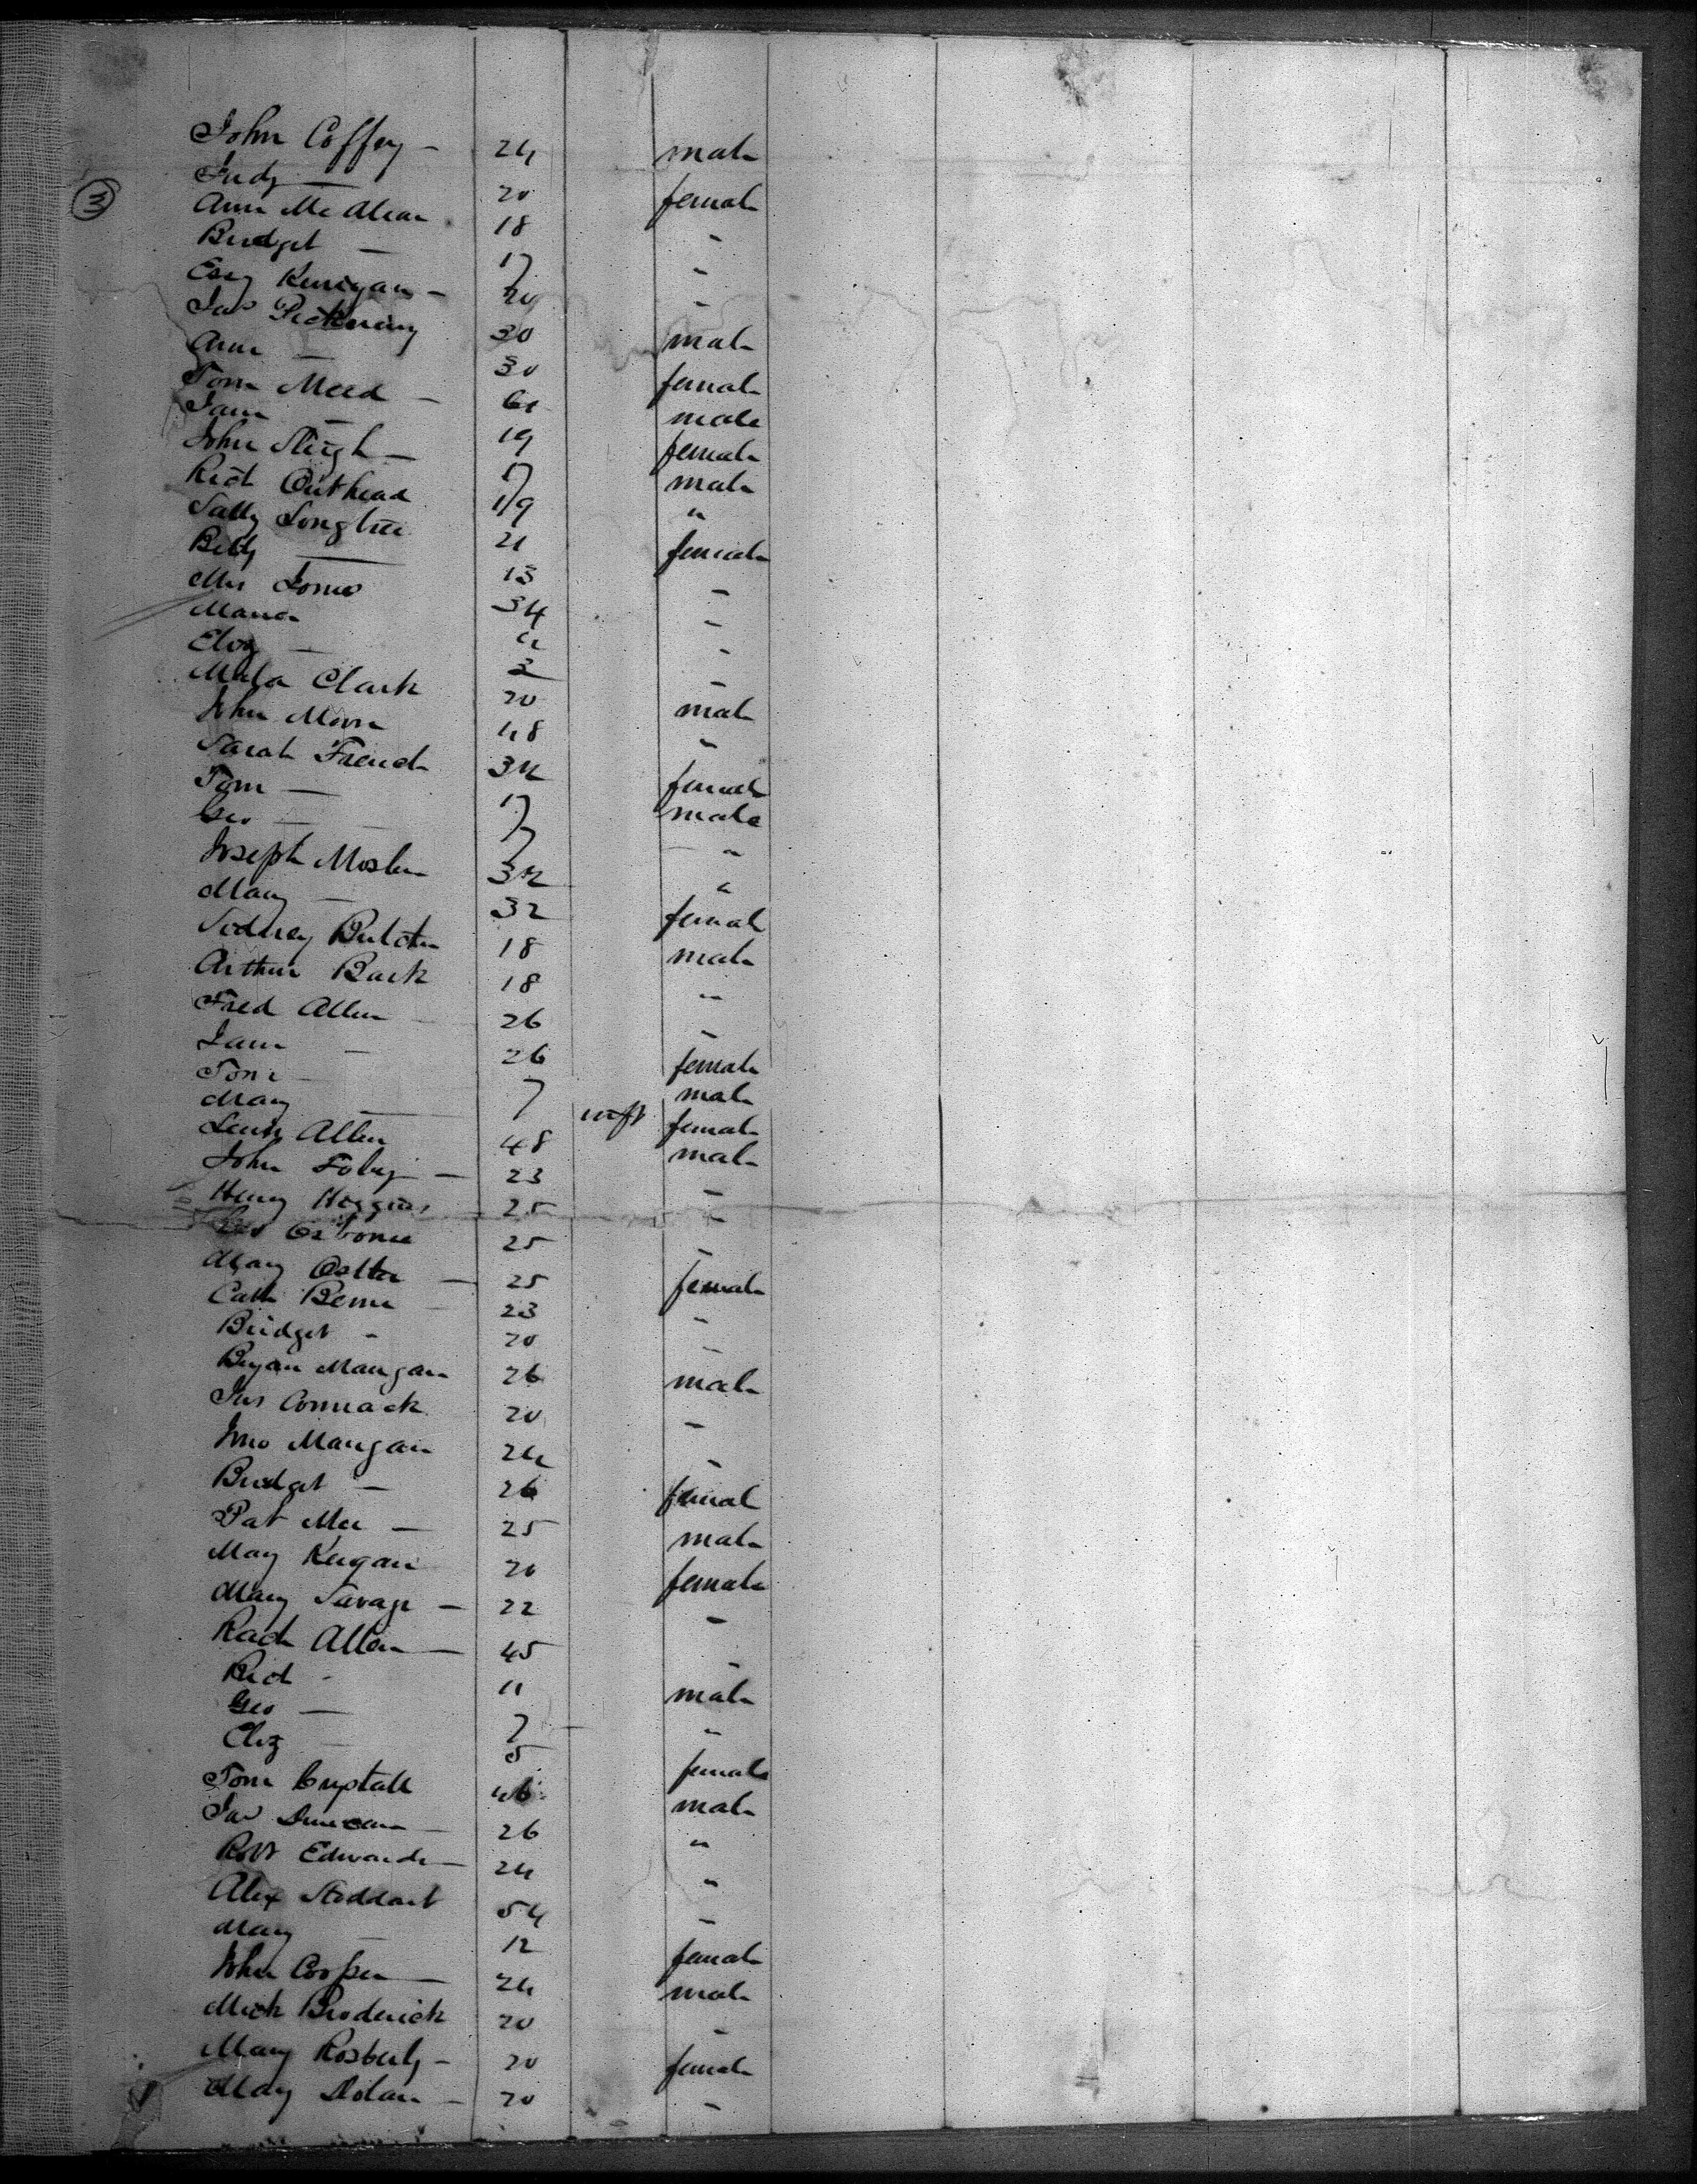 ③
John Coffey - 24 male
Judy — 20 female
Ann McAlear 18 "
Bridget — 17 "
Esey Kerrigan - 20 "
Jas Pickering 30 male
Ann — 30 female
Tom Meed - male
Jane — 19 female
John Sleigh - 17 male
Rich Outhead 19 "
Sally Longtree 21 female
Betty — 13 "
Mrs 34 "
Maria "
Eliz — 2 "
Clark 20 male
John Moon 48 "
Sarah French 32 female
Tom — 17 male
Geo — 7 "
Joseph Moslen 32 "
Mary — 32 female
Sodney 18 male
Arthur Back 18 "
Fred Allen - 26 "
Jane - 26 female
Tom - 7 male
Mary — inft female
Lewis Allen 48 male
John Foley - 23 "
Henry Higgins 25 "
Geo Osborne 25 "
Mary - 25 female
Cath 23 "
Bridget - 20 "
Bryan Mangan 26 male
Jas Cormack 20 "
Jno Mangan 24 "
Bridget — 26 female
Pat Mee — 25 male
Mary Keegan 20 female
Mary Savage - 22 "
Rach Allen - 45 "
Rich - 11 male
Geo — 7 "
Eliz — 5 female
Tom 46 male
Jas Duncan - 26 "
Robt Edwards - 24 "
Alex Stoddart 54 "
Mary — 12 female
John Cooper - 24 male
Mich Broderick 20 "
Mary Rosberly - 20 female
Mary Dolan - 20 "